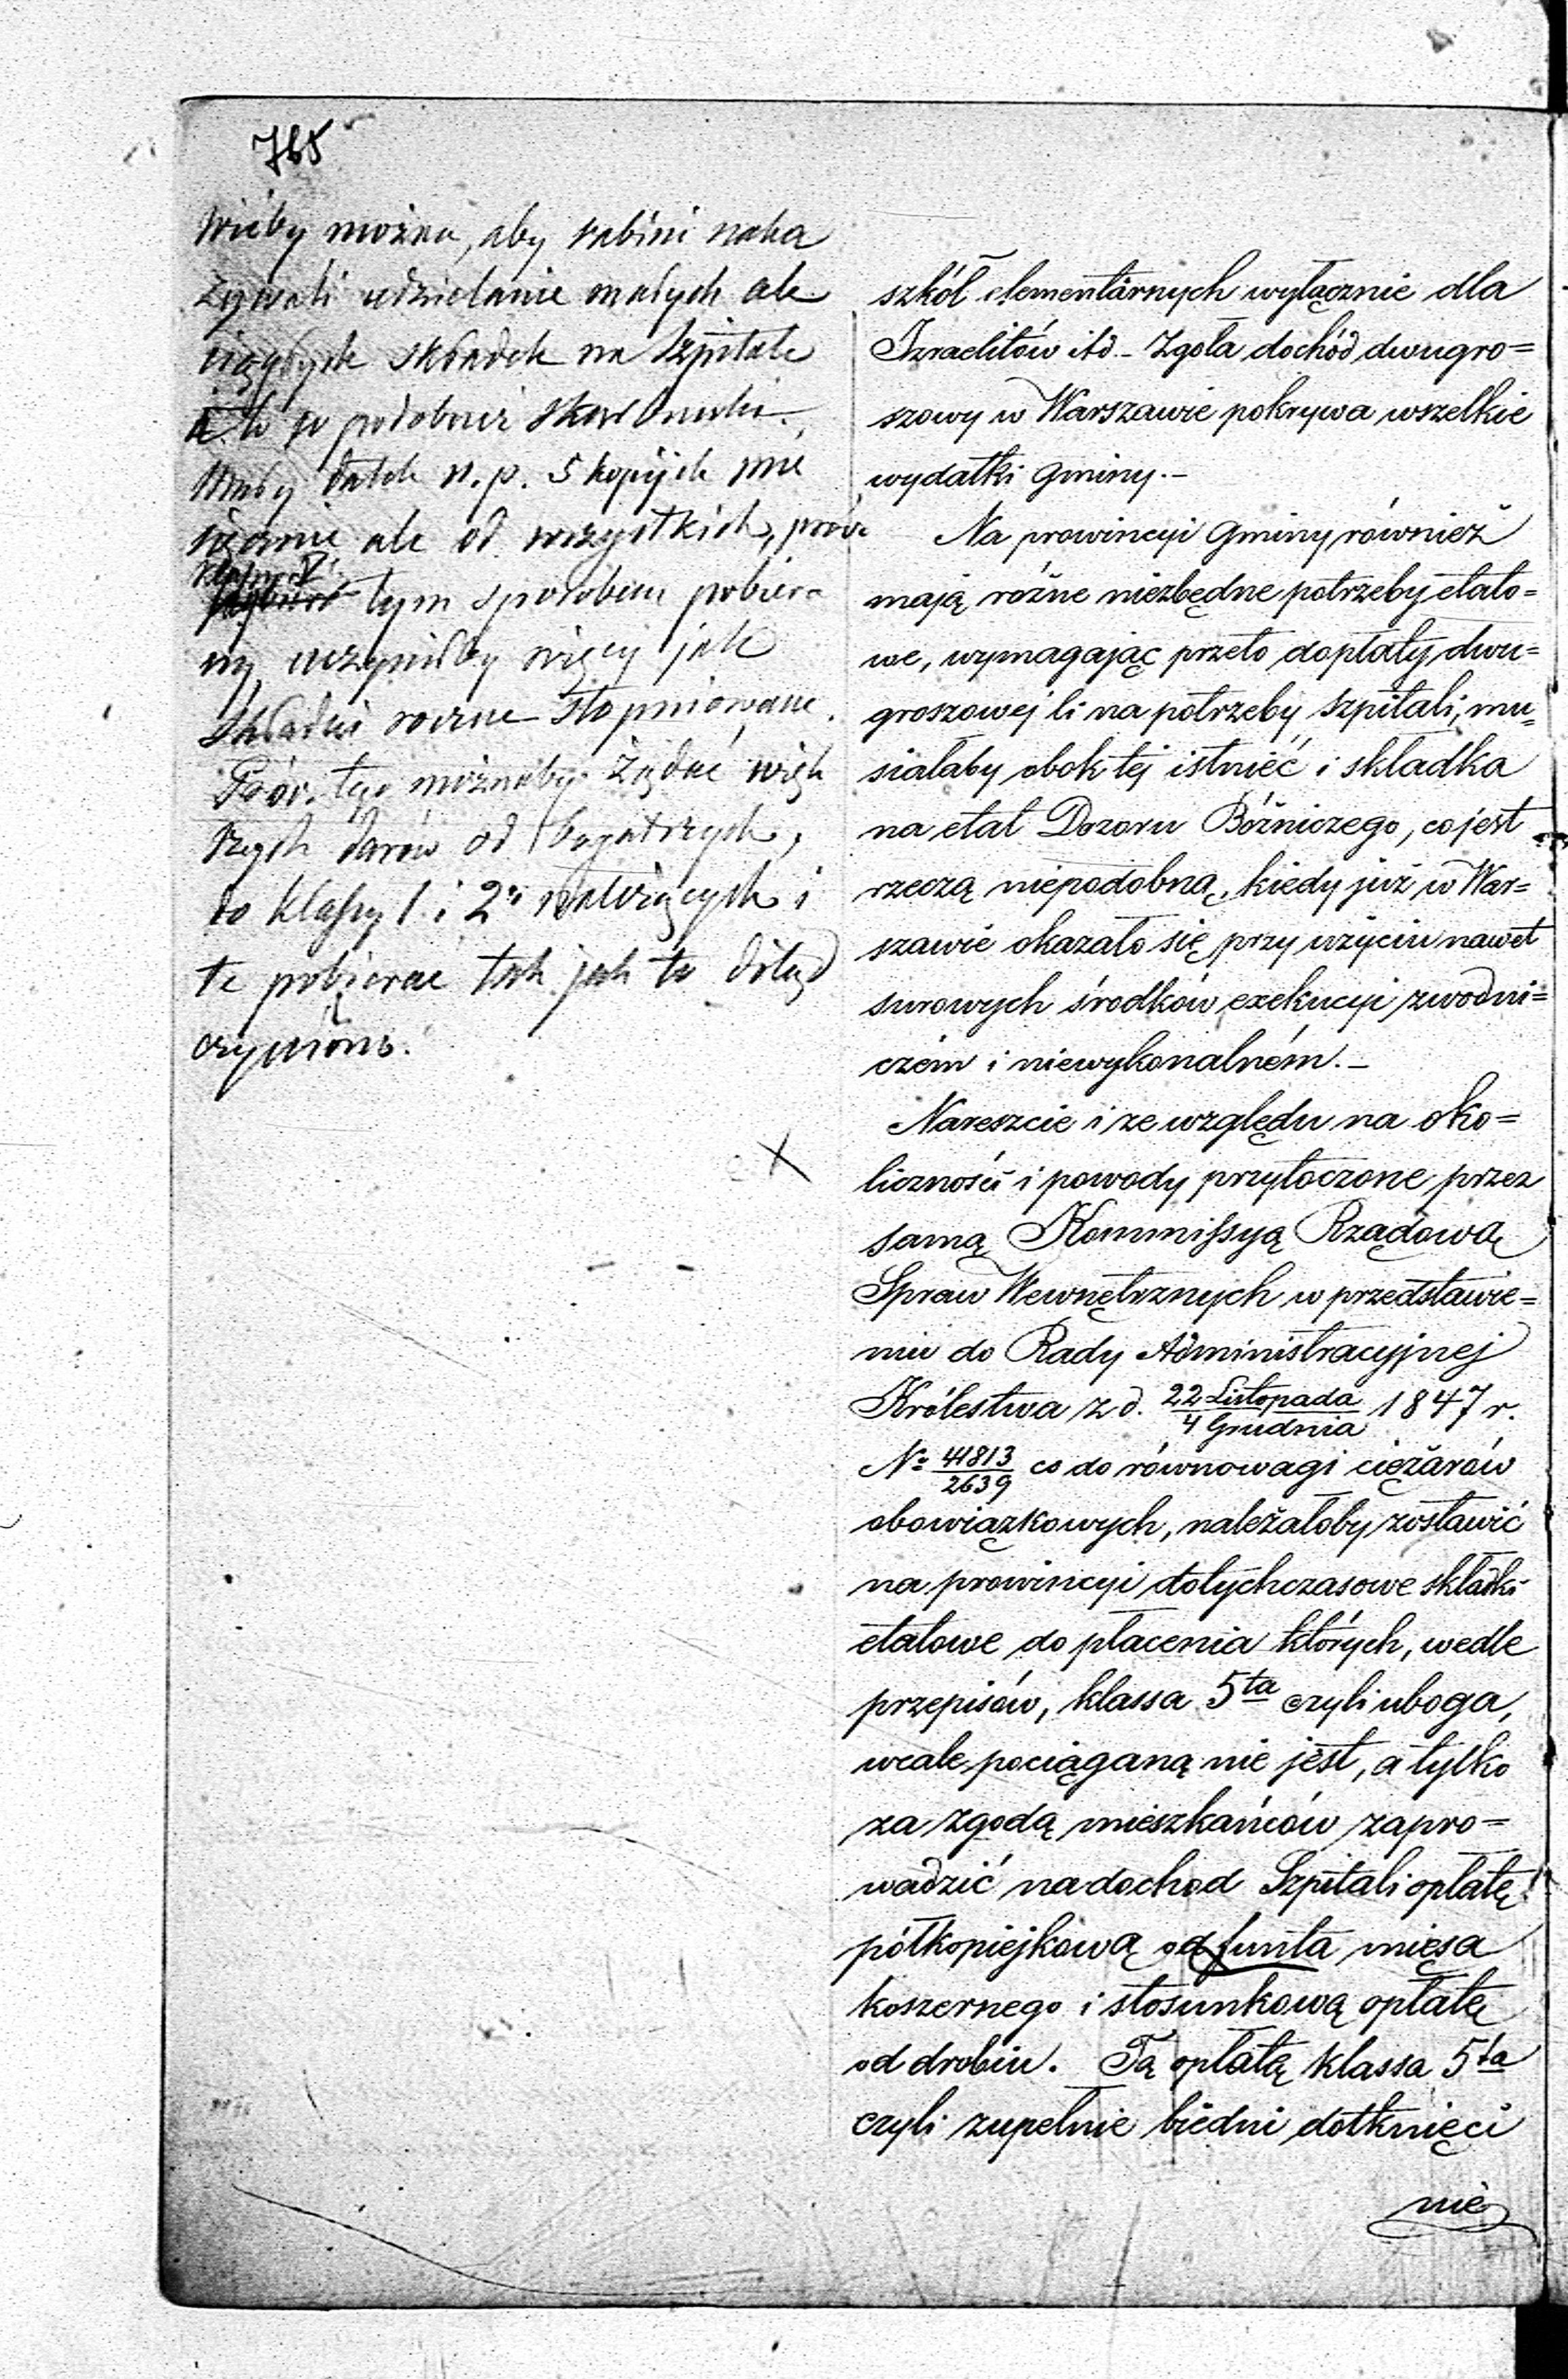 765
wićby można, aby rabini naka
zywali udzielanie małych ale
ciągłych składek na Szpitale
to po podobnie Skarbonki.
Mały datek n.p. 5 kopijek mie
sięcznie ale od wszystkich, prócz
klassy V. tym sposobem pobiera
ny uczyniłby więcej jak
składki roczne stopniowane.
Prócz tego możnaby żądać więk
szych darów od bogatszych,
do klassy 1 i 2éj należących i
te pobierać tak jak to dotąd
czyniono.
szkół elementarnych wyłącznie dla
Izraelitów itd_ Zgoła dochód dwugro=
szowy w Warszawie pokrywa wszelkie
wydatki Gminy._
Na prowincyi Gminy również
mają różne niezbędne potrzeby etato=
we, wymagając przeto dopłaty dwu=
groszowej li na potrzeby szpitali, mu=
siałaby obok tej istnieć i składka
na etat Dozoru Bóżniczego, co jest
rzeczą niepodobną, kiedy już w War=
szawie okazało się przy użyciu nawet
surowych środków exekucyi zwodni=
czém i niewykonalném._
Nareszcie i ze względu na oko=
liczności i powody przytoczone przez
samą Kommissyą Rządową
Spraw Wewnętrznych w przedstawie=
niu do Rady Administracyjnej
Królestwa z d. 22 Listopada/4 Grudnia 1847 r.
No 41813/2639 co do równowagi ciężarów
obowiązkowych, należałoby zostawić
na prowincyi dotychczasowe składki
etatowe do płacenia których, wedle
przepisów, klassa 5ta czyli uboga,
wcale pociąganą nie jest, a tylko
za zgodą mieszkańców zapro=
wadzić na dochod Szpitali opłatę
półkopiejkową od funta mięsa
koszernego i stosunkową opłatę
od drobiu. Tą opłatą klassa 5ta
czyli zupełnie biedni dotknięci
nie